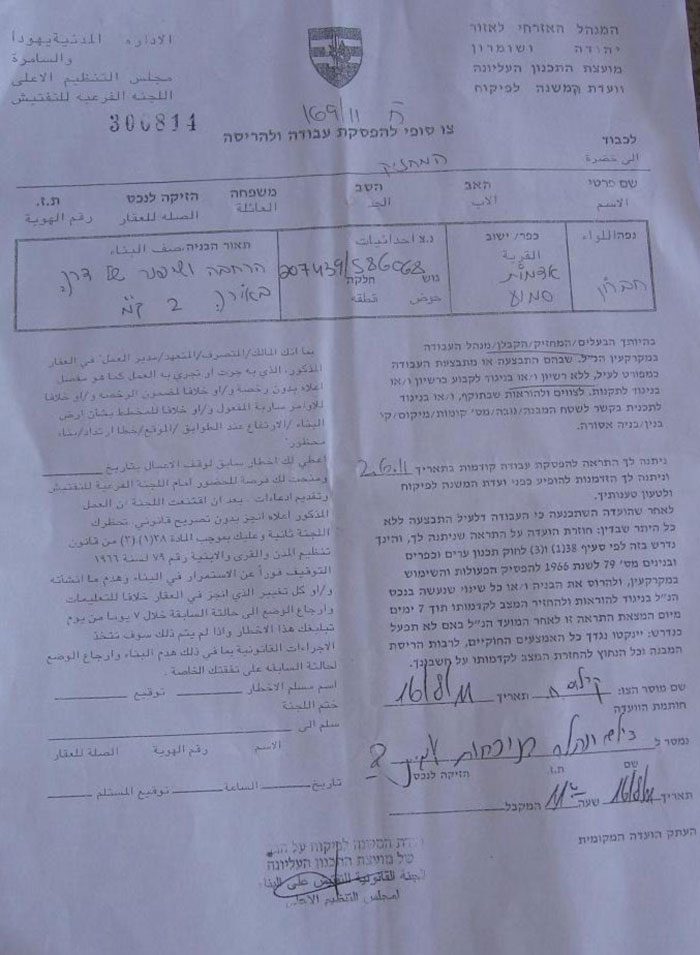 המנהל האזרחי לאזור
יהודה ושומרון
מועצת התכנון העליונה
וועדת המשנה לפיקוח
الادارة المدنية يهودا
والسامرة
مجلس التنظيم الاعلى
اللجنه الفرعيه للتفتيش
300814
ח 169/11
צו סופי להפסקת עבודה ולהריסה
לכבוד
الى حضرة
המחזיק
שם פרטי האב הסב משפחה הזיקה לנכס ת.ז.
الاسم الاب الجد العائلة الصله للعقار رقم الهوية
נפה/اللواء כפר/ישוב נ.צ احداثيات תאור הבניה/وصف البناء
القرية
חברון
אדמות
סמוע
207439/586068
גוש חלקה
حوض قطعه
הרחבה ושיפור של דרך
באורך 2 ק"מ
בהיותך הבעלים/המחזיק/הקבלן/מנהל העבודה
במקרקעין הנ"ל, שבהם התבצעה או מתבצעת העבודה
כמפורט לעיל, ללא רשיון ו/או בניגוד לקבוע ברשיון ו/או
בניגוד לתקנות, לצווים ולהוראות שבתוקף, ו/או בניגוד
לתכנית בקשר לשטח המבנה/גובה/מס' קומות/מיקום/קו
בנין/בניה אסורה.
ניתנה לך התראה להפסקת עבודה קודמת בתאריך 2.6.11
וניתנה לך הזדמנות להופיע בפני ועדת המשנה לפיקוח
ולטעון טענותיך.
לאחר שהועדה השתכנעה כי העבודה דלעיל התבצעה ללא
כל היתר שבדין: חוזרת הועדה על התראה שניתנה לך, והינך
נדרש בזה לפי סעיף 38(1) ו(3) לחוק תכנון ערים וכפרים
ובנינים מס' 79 לשנת 1966 להפסיק הפעולות והשימוש
במקרקעין, ולהרוס את הבניה ו/או כל שינוי שנעשה בנכס
הנ"ל בניגוד להוראות ולהחזיר המצב לקדמותו תוך 7 ימים
מיום המצאת התראה זו לאחר המועד הנ"ל באם לא תפעל
כנדרש: יינקטו נגדך כל האמצעים החוקיים, לרבות הריסת
המבנה וכל הנחוץ להחזרת המצב לקדמותו על חשבונך.
שם מוסר הצו: תאריך 16/8/11
חותמת הוועדה
נמסר ל
שם ת.ז. הזיקה לנכס
תאריך 16/8/11 שעה המקבל
העתק הועדה המקומית
بما انك المالك/المتصرف/المتعهد/مدير العمل في العقار
المذكور، الذي به جرت او تجري به العمل كما هو مفصل
اعلاه بدون رخصة و/او خلافا لمضمون الرخصه و/او خلافا
للاوامر سارية المفعول و/او خلافا للمخطط بشأن ارض
البناء /الارتفاع عند الطوابق /الموقع/خط ارتداد/بناء
محظور
اعطي لك اخطار سابق لوقف الاعمال بتاريخ
ومنحت لك فرصة للحضور امام اللجنة الفرعية للتفتيش
وتقديم ادعاءات . بعد ان اقتنعت اللجنة ان العمل
المذكور اعلاه انجز بدون تصريح قانوني تحظرك
اللجنة ثانية وعليك بموجب المادة ٣٨(١)(٣) من قانون
تنظيم المدن والقرى والابنية رقم ٧٩ لسنة ١٩٦٦
التوقيف فوراً عن الاستمرار في البناء وهدم ما انشأته
و/او كل تغيير الذي انجز في العقار خلافا للتعليمات
وارجاع الوضع الى حالتة السابقة خلال ٧ يوما من يوم
تبليغك هذا الاخطار واذا لم يتم ذلك سوف نتخذ
الاجراءات القانونية بما في ذلك هدم البناء وارجاع الوضع
لحالتة السابقه على نفقتك الخاصة .
اسم مسلم الاخطار توقيع
ختم اللجنة
سلم الى
الاسم رقم الهوية الصلة للعقار
تاريخ الساعة توقيع المستلم
ועדת המשנה לפיקוח על
של מועצת התכנון העליונה
للتفتيش على
لمجلس التنظيم الاعلى